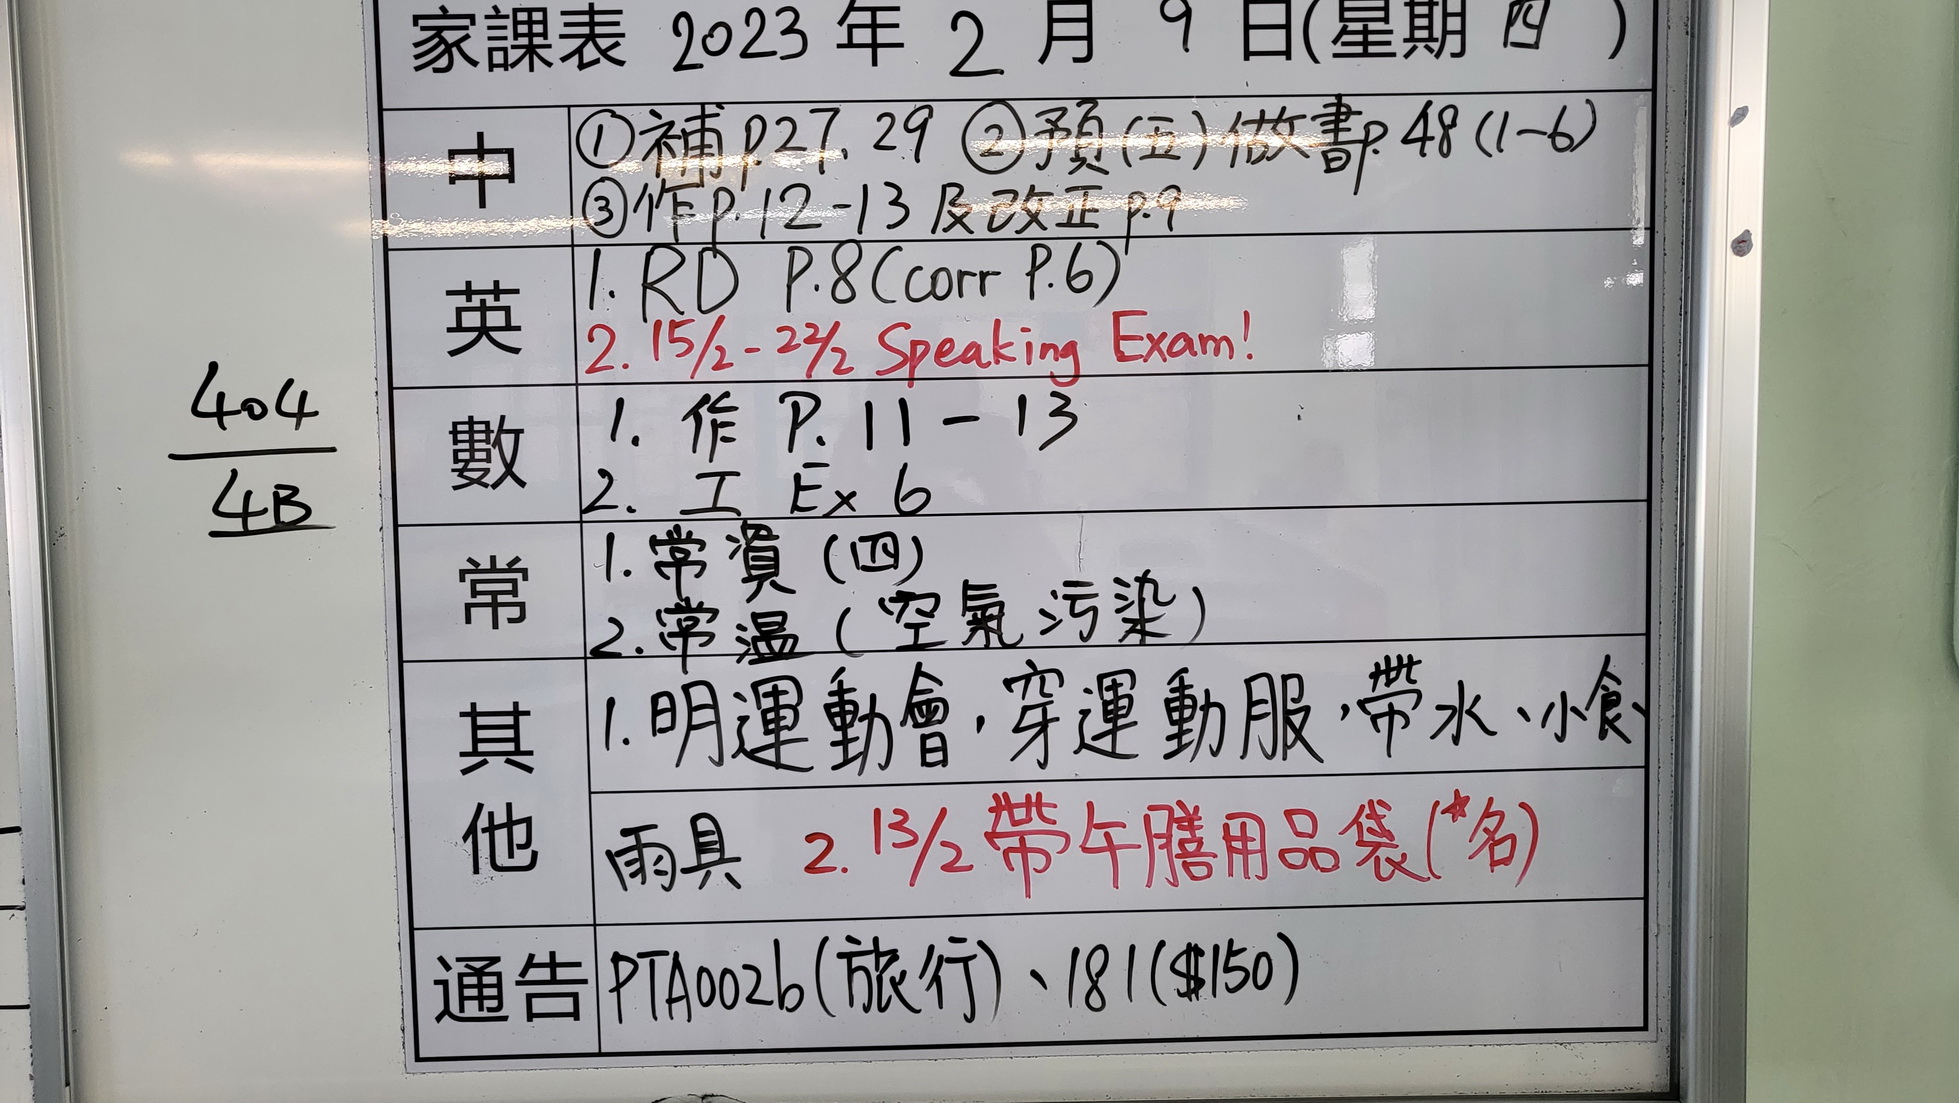 家課表 2023 年 2 月 9 日(星期 四 )
中
①補p.27, 29 ②預(五)做書p. 48 (1-6)
③作p.12-13 及改正 p.9
英
1. RD P.8(corr P.6)
2. 15/2 - 22/2 Speaking Exam!
404
4B
數
1. 作 P. 11 - 13
2. 工 Ex 6
常
1. 常資 (四)
2. 常温 (空氣污染)
其他
1. 明運動會，穿運動服，帶水、小食、
雨具 2. 13/2 帶午膳用品袋(*名)
通告
PTA002b(旅行)、181($150)